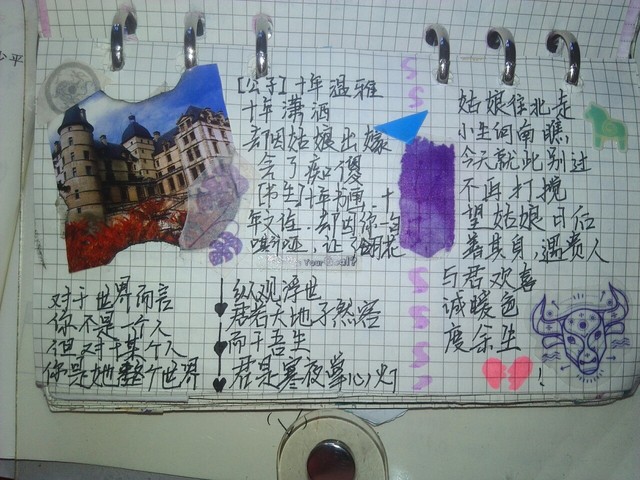 [公子]十年温雅
十年潇洒
却因姑娘出嫁
贪了痴傻
[书生]十年书画,十
年文雅,却因你一句
嘶哑,让
对于世界而言
你不是一个人
但对于某个人
你是她整个世界
纵观浮世
君若天地孑然客
而于吾生
君是寒夜掌心灯
姑娘往北走
小生向南瞧
今天就此别过
不再打搅
望姑娘日后
善其身,遇贵人
与君欢喜
诚暖色
度余生
!
公平